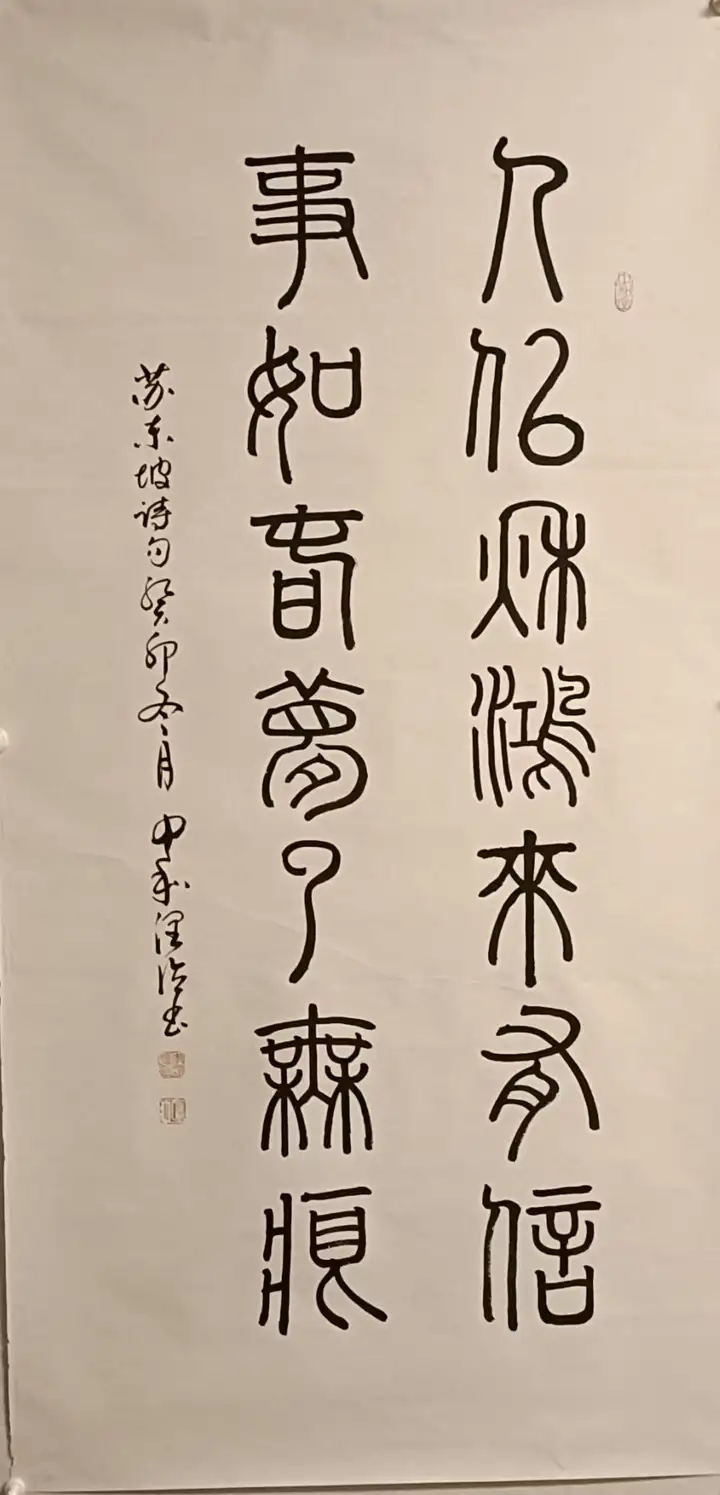 人似秋鴻來有信
事如春夢了無痕
苏东坡诗句癸卯冬月 书